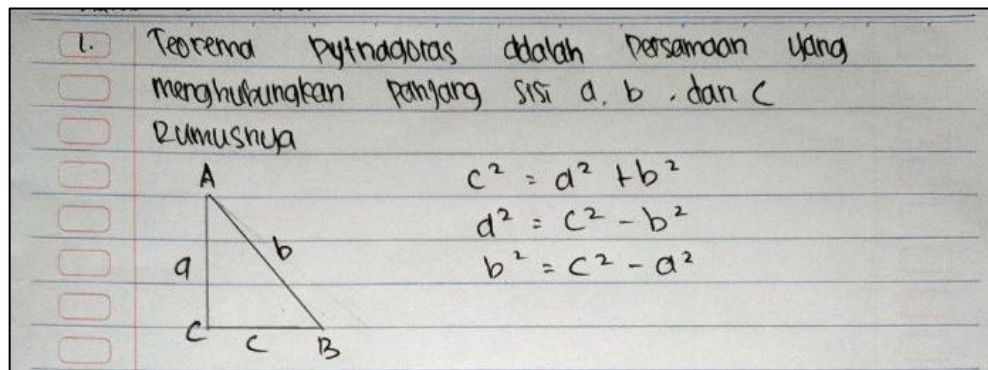 1. Teorema Pythagoras adalah Persamaan yang
menghubungkan panjang sisi a, b, dan c
Rumusnya
A
c² = a² + b²
a² = c² - b²
a
b
b² = c² - a²
C
c
B